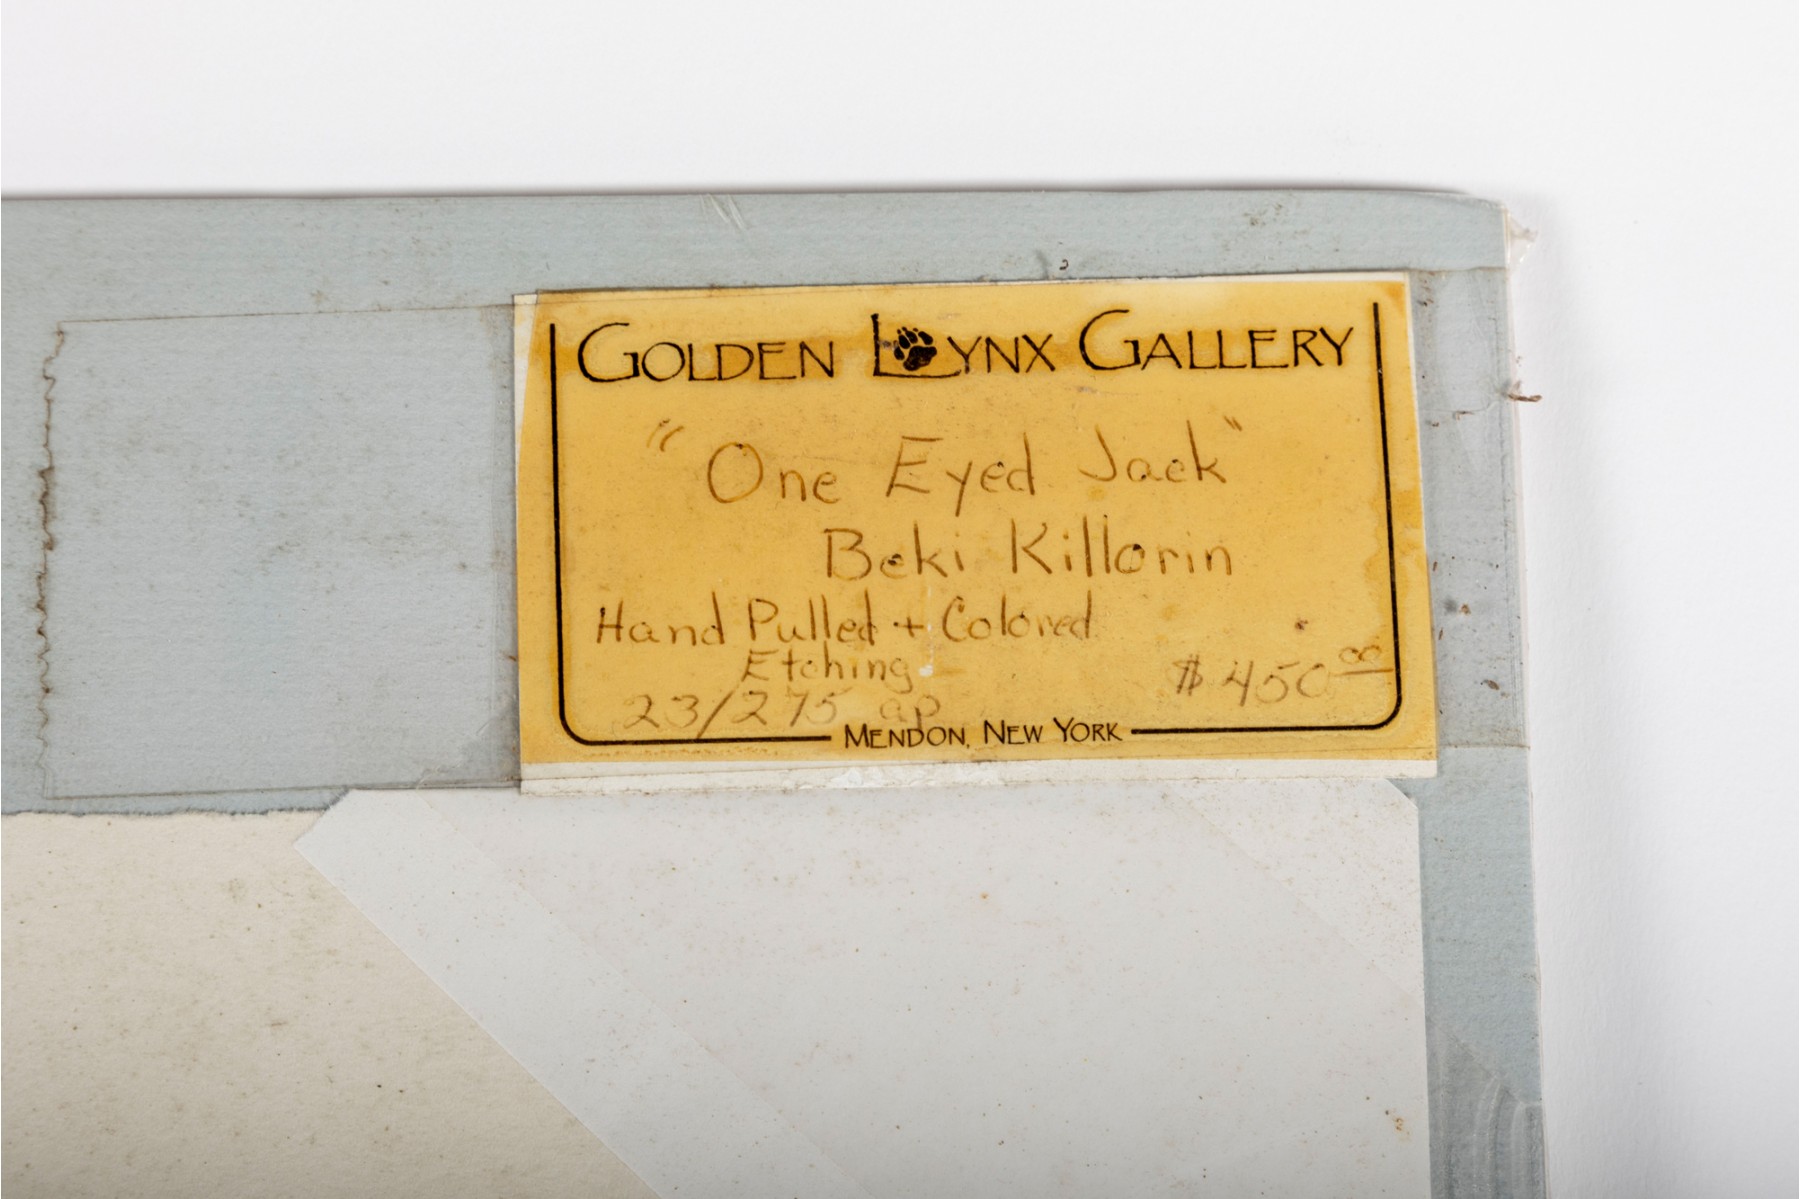 GOLDEN LYNX GALLERY
"One Eyed Jack"
Beki Killorin
Hand Pulled + Colored
Etching
$450.00
23/275 ap
MENDON, NEW YORK